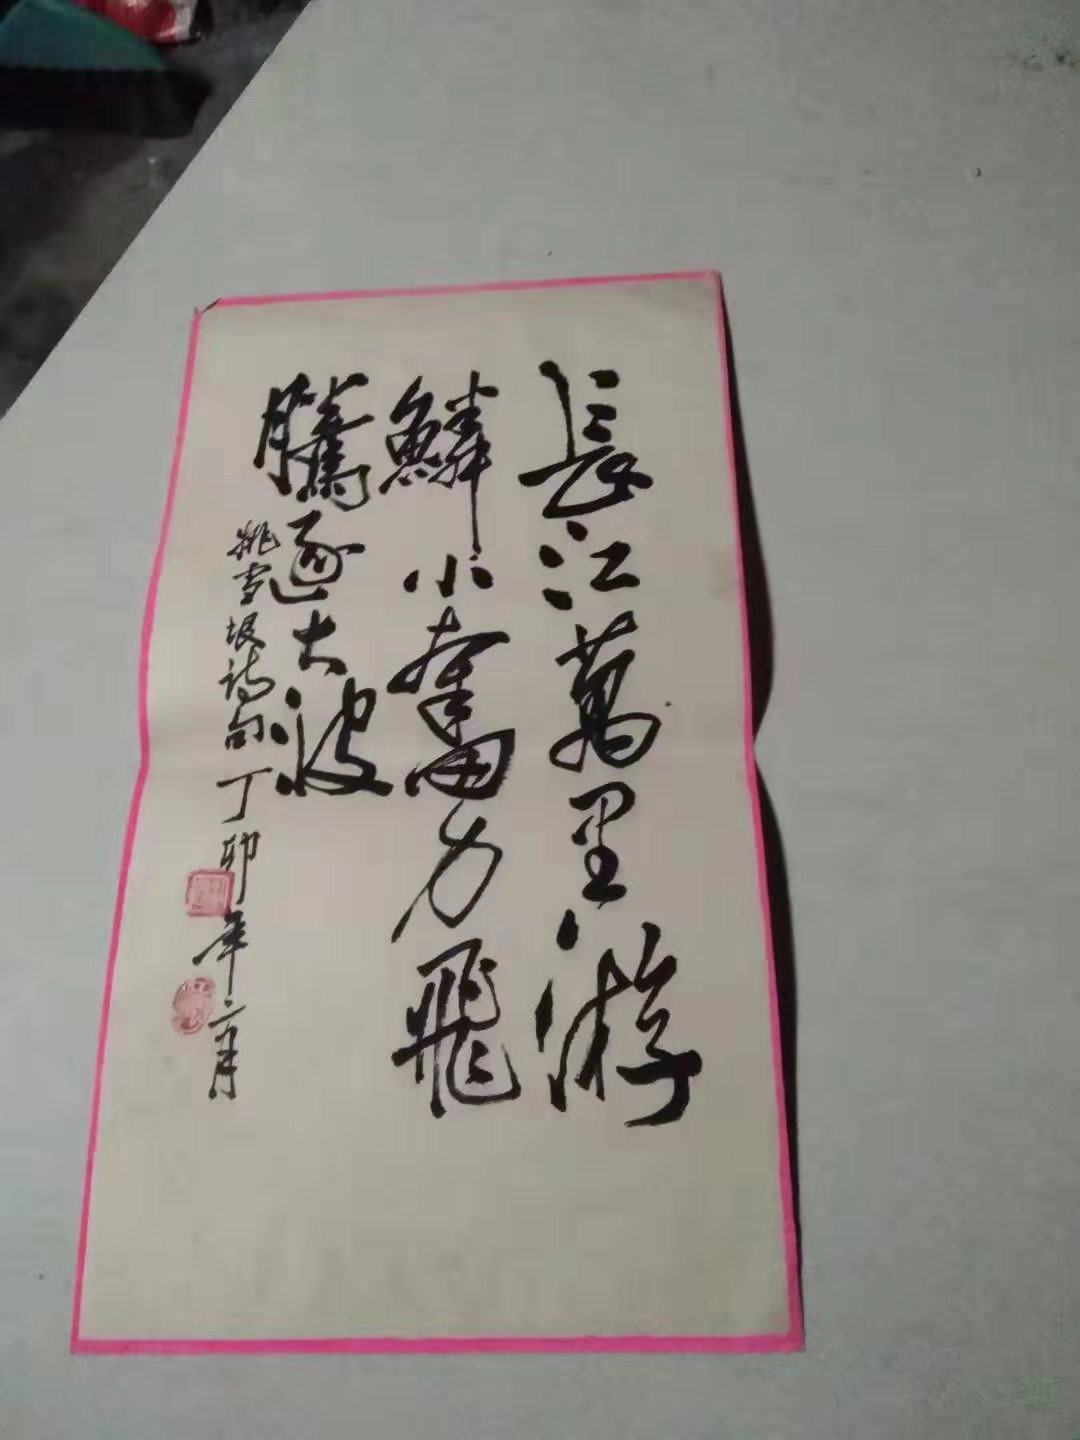 長江萬里游
鱗小奮力飛
騰逐大波
姚雪垠詩句丁卯年六月